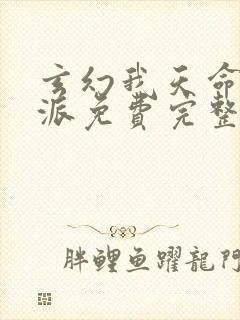 玄幻我天命
派免费完整
胖鲤鱼躍龍门